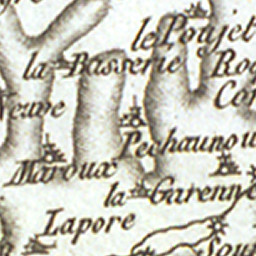 le Poujet
la Basserie
Neuve
Pechaunou
Maroux
la Garenne
Lapore